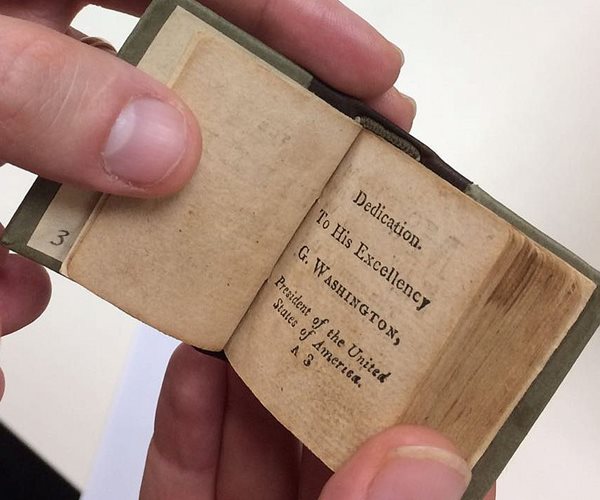 3
Dedication.
To His Excellency
G. WASHINGTON,
President of the United
States of America.
A 3